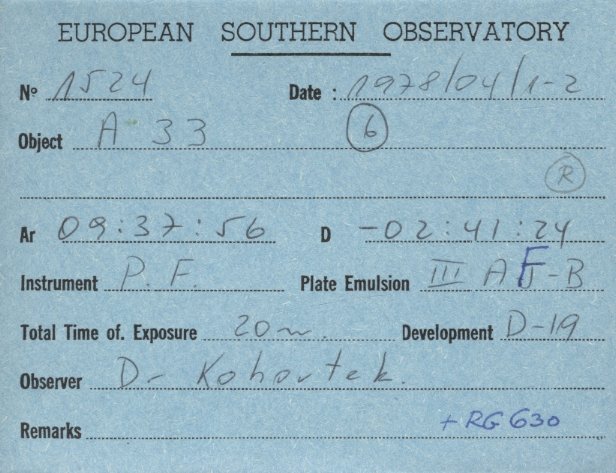 EUROPEAN SOUTHERN OBSERVATORY
Nº 1524 Date : 1978/04/1-2
Object A 33 6
R
Ar 09:37:56 D -02:41:24
Instrument P.F. Plate Emulsion III A F-B
Total Time of. Exposure 20m. Development D-19
Observer Dr Kohoutek.
Remarks + RG 630